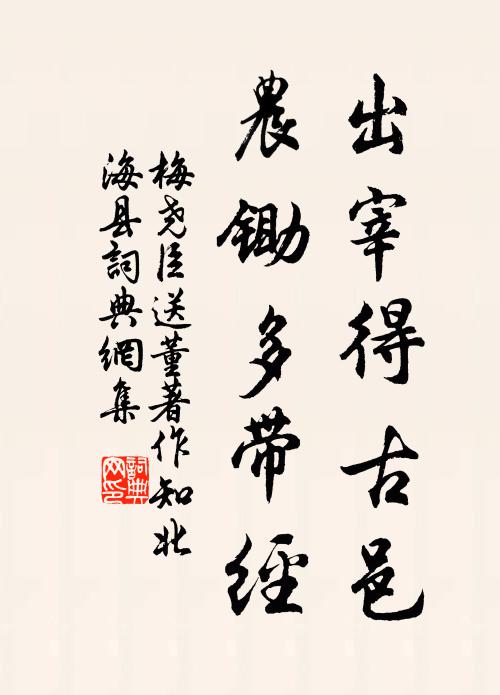 出宰得古邑
農鋤多带經
梅尧臣送董著作知北
海县詞典網集
詞典网印